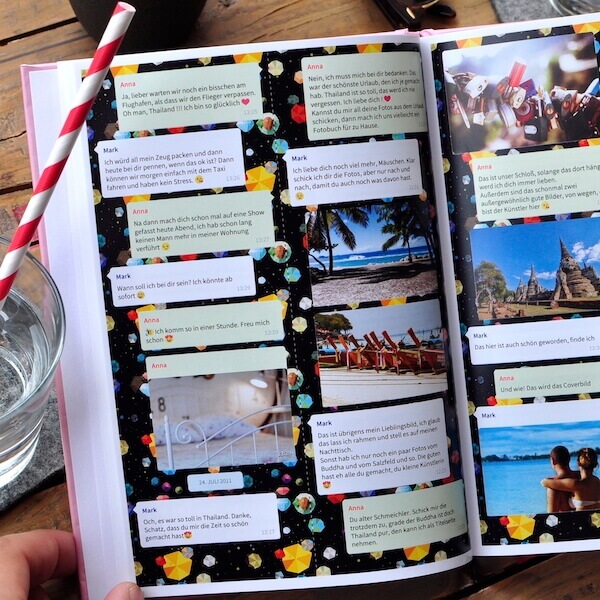 Anna
Ja, lieber warten wir noch ein bisschen am
Flughafen, als dass wir den Flieger verpassen.
Oh man, Thailand !!! Ich bin so glücklich ❤️
13:25
Mark
Ich würd all mein Zeug packen und dann
heute bei dir pennen, wenn das ok ist? Dann
können wir morgen einfach mit dem Taxi
fahren und haben kein Stress. 😘
13:26
Anna
Na dann mach dich schon mal auf eine Show
gefasst heute Abend, ich hab schon lang
keinen Mann mehr in meiner Wohnung
verführt 😉
13:27
Mark
Wann soll ich bei dir sein? Ich könnte ab
sofort 😅
13:29
Anna
🎉 Ich komm so in einer Stunde. Freu mich
schon 😍
Anna
24. JULI 2011
Mark
Och, es war so toll in Thailand. Danke,
Schatz, dass du mir die Zeit so schön
gemacht hast 😍
Anna
Nein, ich muss mich bei dir bedanken. Das
war der schönste Urlaub, den ich je gemacht
hab. Thailand ist so toll, das werd ich nie
vergessen. Ich liebe dich ! ❤️
Kannst du mir all deine Fotos aus dem Urlaub
schicken, dann mach ich uns vielleicht ein
Fotobuch für zu Hause.
Mark
Ich liebe dich noch viel mehr, Mäuschen. Klar
schick ich dir die Fotos, aber nur nach und
nach, damit du auch noch was davon hast.
😘
Mark
Das ist übrigens mein Lieblingsbild, ich glaub
das lass ich rahmen und stell es auf meinen
Nachttisch.
Sonst hab ich nur noch ein paar Fotos vom
Buddha und vom Salzfeld und so. Die guten
hast eh alle du gemacht, du kleine Künstlerin
😍
Anna
Du alter Schmeichler. Schick mir die
trotzdem zu, grade der Buddha ist doch
Thailand pur, den kann ich als Titelseite
nehmen.
Anna
Das ist unser Schloß, solange das dort häng
werd ich dich immer lieben.
Außerdem sind das schonmal zwei
außergewöhnlich gute Bilder, von wegen,
bist der Künstler hier 😘
Mark
Das hier ist auch schön geworden, finde ich
Anna
Und wie! Das wird das Coverbild
Mark